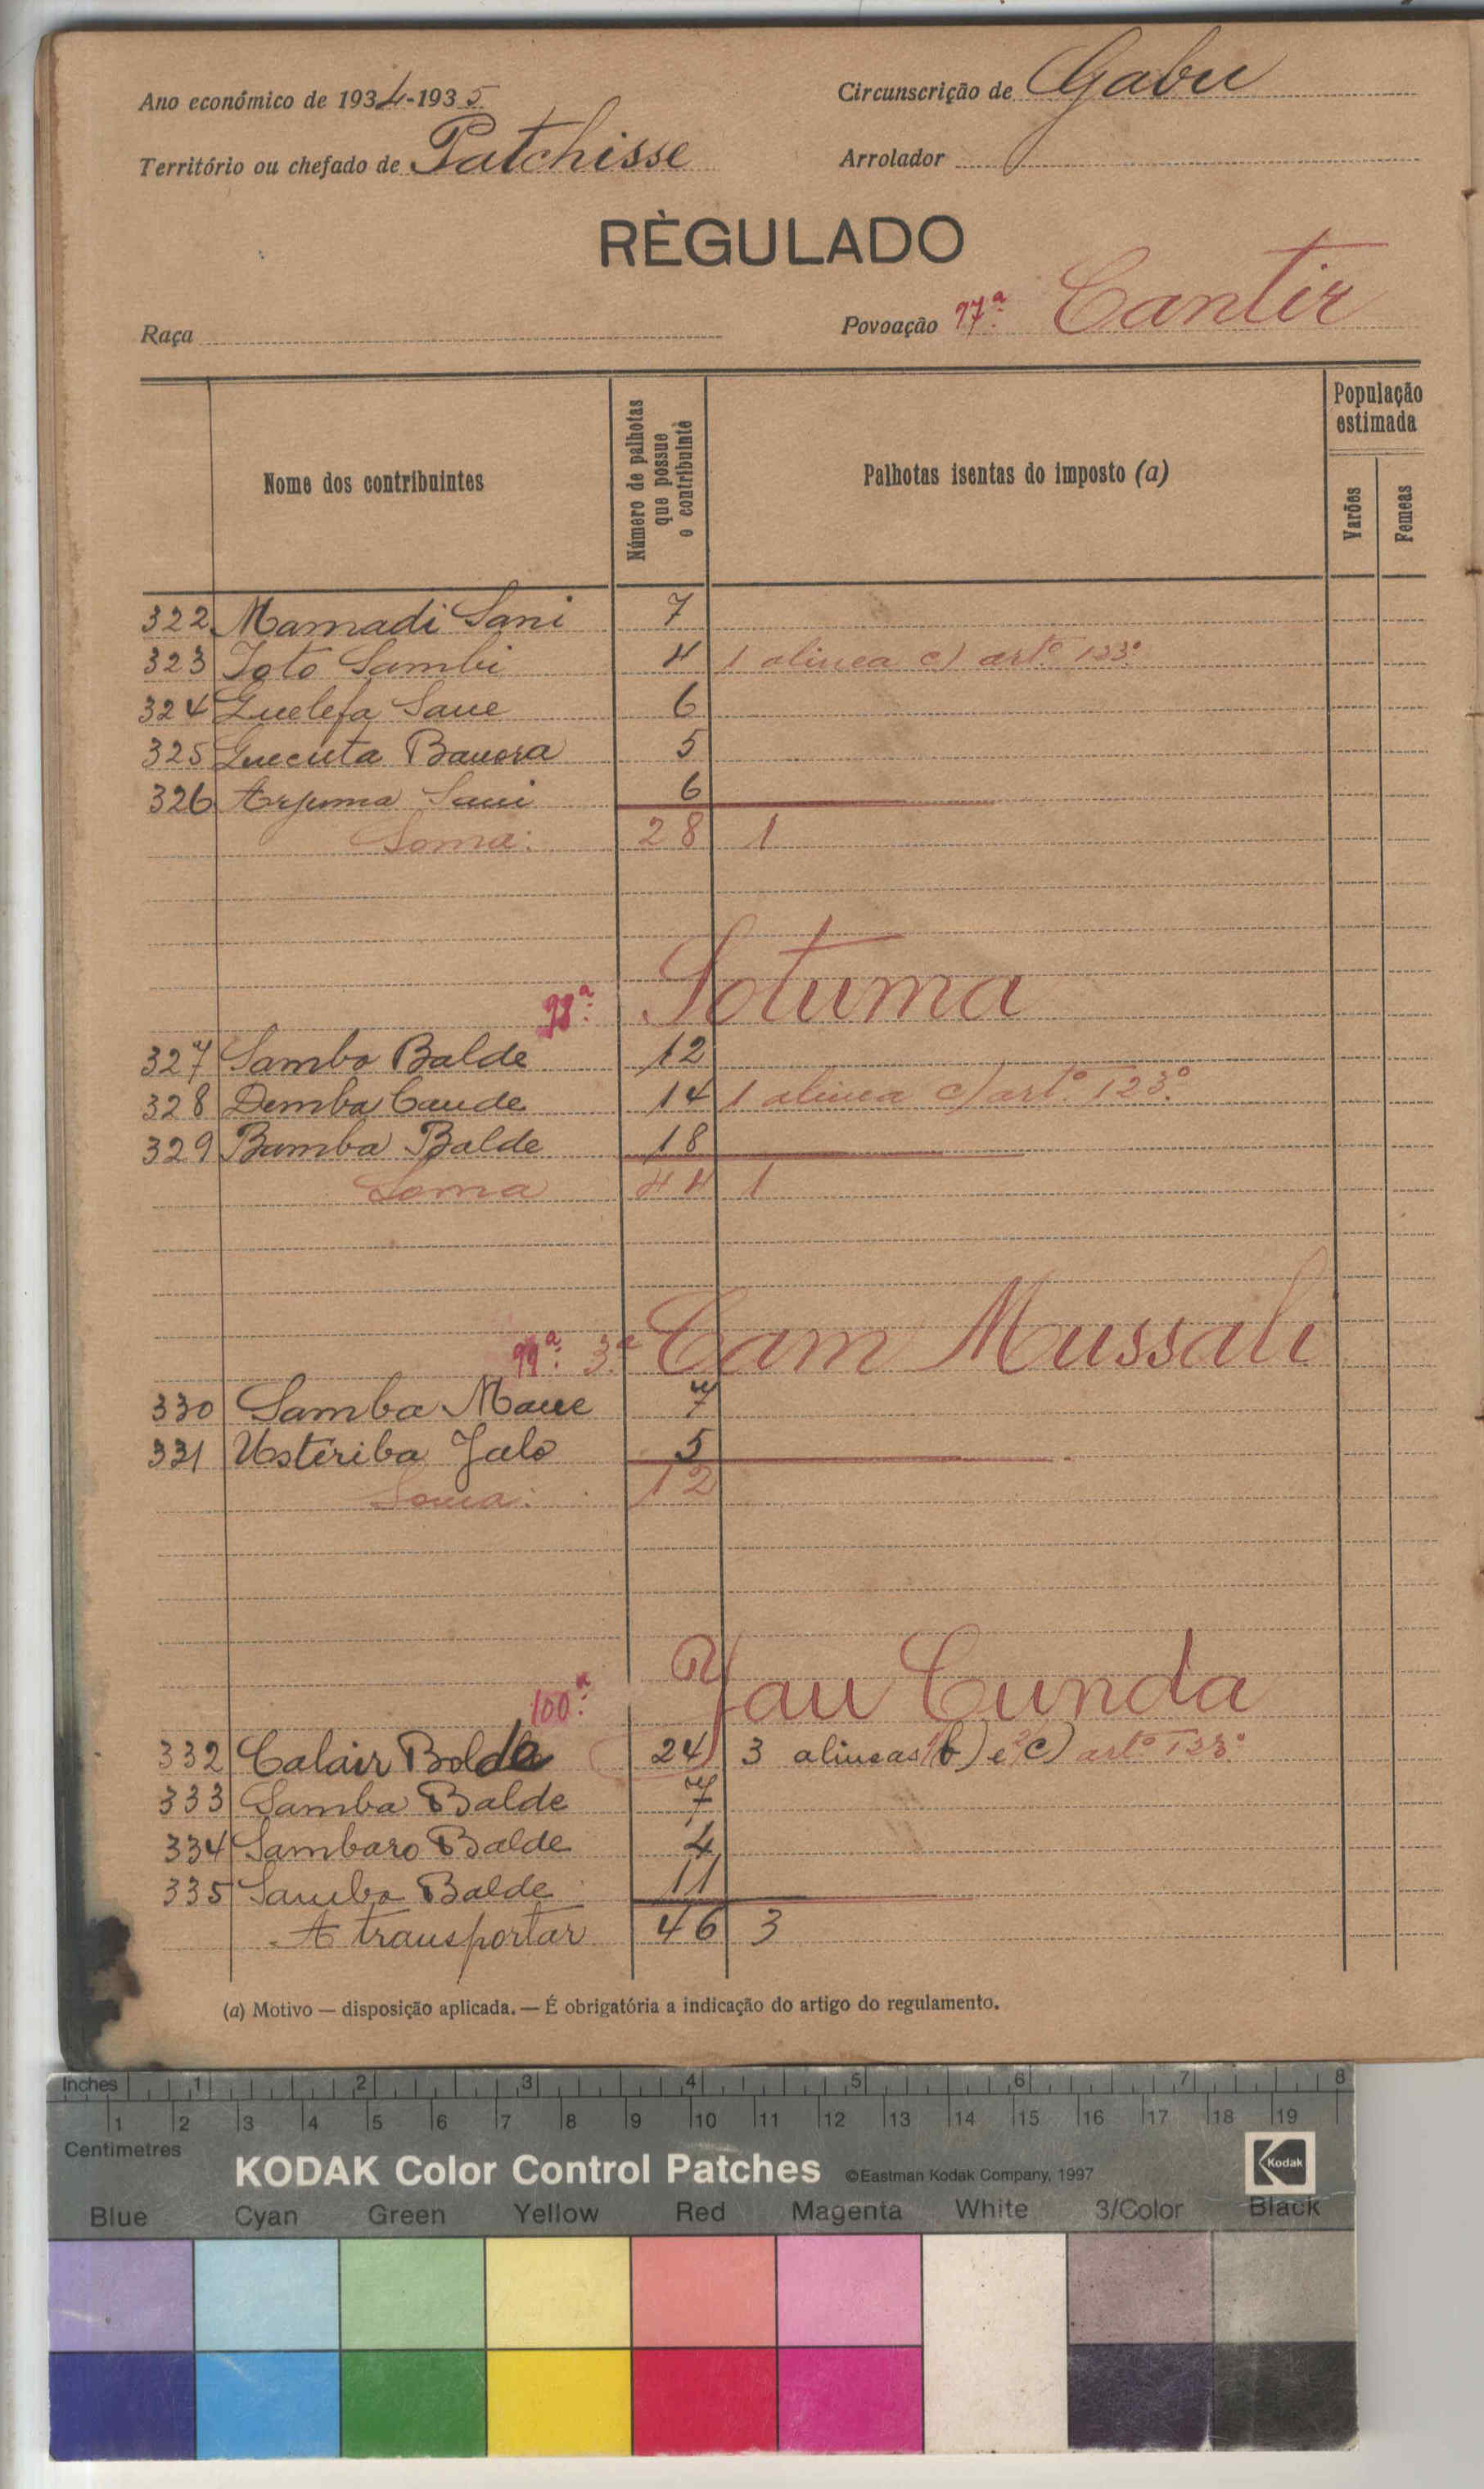 Ano económico de 1934-1935
Circunscrição de Gabu
Território ou chefado de Patchisse
Arrolador
RÈGULADO
Raça
Povoação 97ª Cantir
Nome dos contribuintes
Número de palhotas que possue o contribuinte
Palhotas isentas do imposto (a)
População estimada
Varões
Femeas
322 Mamadi Sani 7
323 Toto Sambi 4 1 alinea c) artº 123º
324 Quelefa Sane 6
325 Quecuta 5
326 Sani 6
Soma: 28 1
98ª Sotuma
327 Sambo Balde 12
328 Demba Cande 14 1 alinea c) artº 123º
329 Bamba Balde 18
Soma 44 1
99ª 3ª Cam Mussali
330 Samba Mane 7
331 Usteriba Jalo 5
Soma: 12
100ª Yau Cunda
332 Calair Balde 24 3 alineas b) e c) artº 123º
333 Samba Balde 7
334 Sambaro Balde 4
335 Sambo Balde 11
A transportar 46 3
(a) Motivo — disposição aplicada. — É obrigatória a indicação do artigo do regulamento.
Inches 1 2 3 4 5 6 7 8
1 2 3 4 5 6 7 8 9 10 11 12 13 14 15 16 17 18 19
Centimetres
KODAK Color Control Patches ©Eastman Kodak Company, 1997 Kodak
Blue Cyan Green Yellow Red Magenta White 3/Color Black